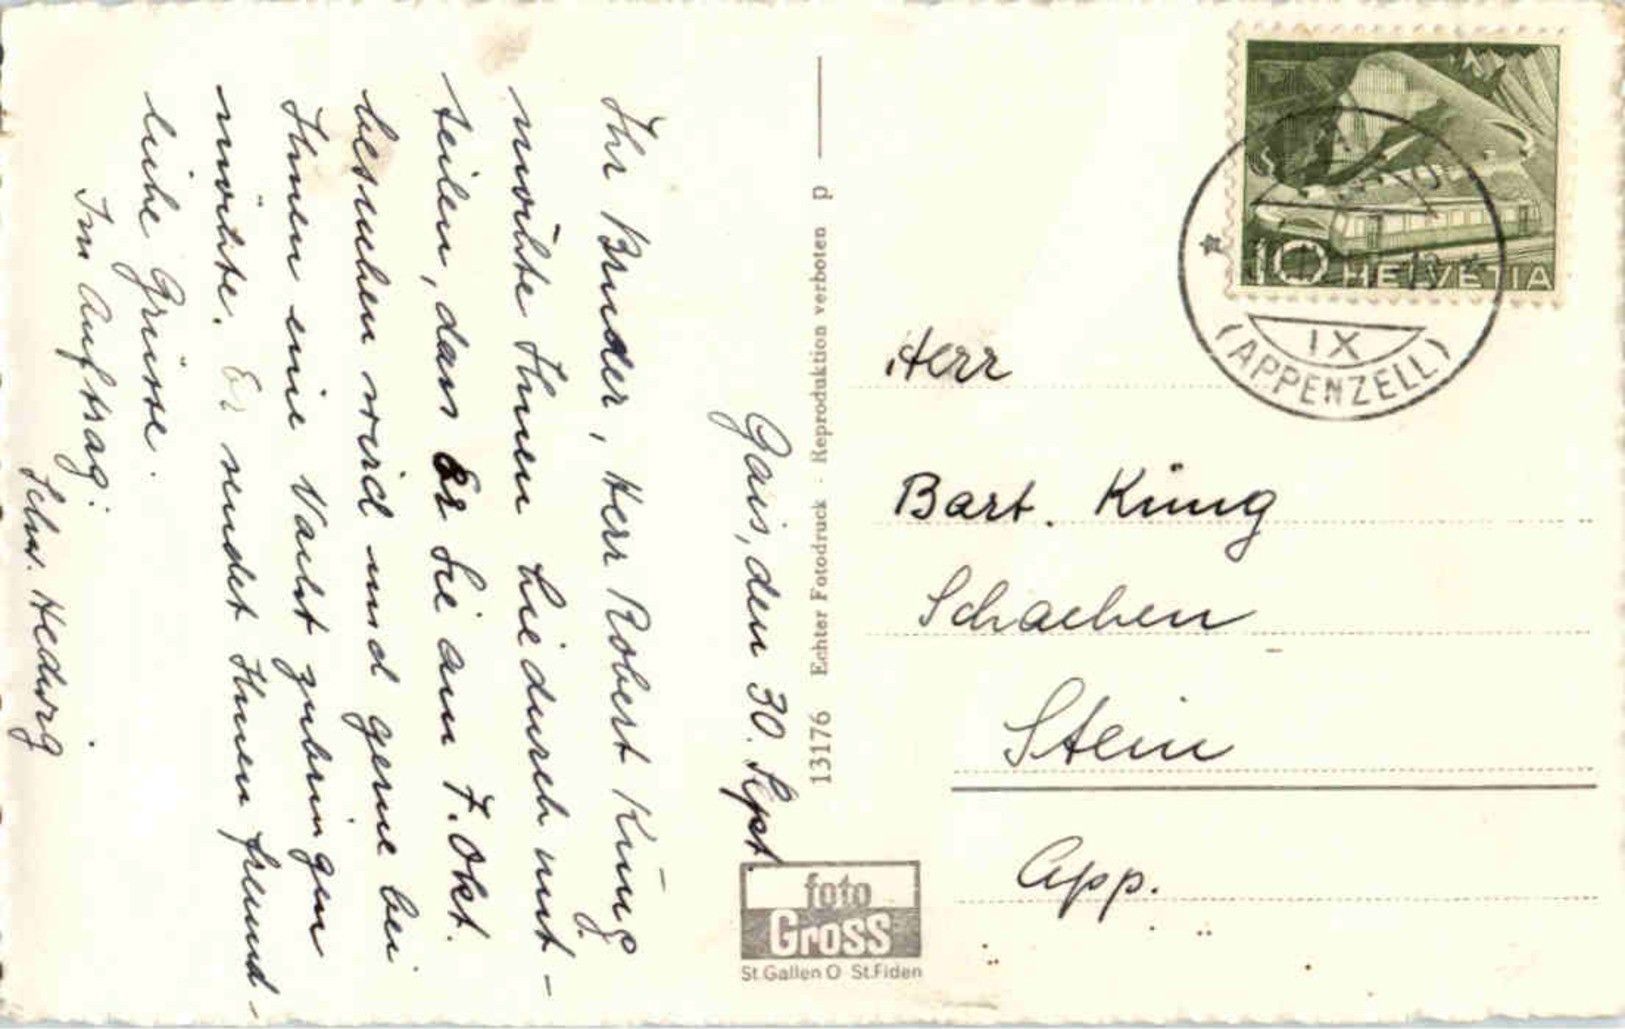 Gais, den 30. Sept
Ihr Bruder, Herr Robert Küng
möchte Ihnen hiedurch mit-
teilen, dass Er Sie am 7. Okt.
besuchen wird und gerne bei
Ihnen eine Nacht zubringen
möchte. Er sendet Ihnen freund-
liche Grüsse.
Im Auftrag:
Schw. Hedwig
13176 Echter Fotodruck · Reproduktion verboten p
foto
Gross
St.Gallen O St.Fiden
10 HELVETIA
IX
(APPENZELL)
Herr
Bart. Küng
Schachen
Stein
App.